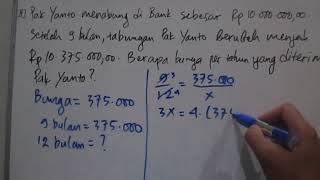 Pak Yanto menabung di Bank sebesar Rp 10.000.000,00.
Setelah 9 bulan, tabungan Pak Yanto berubah menjadi
Rp 10.375.000,00. Berapa bunga per tahun yang diterima
Pak Yanto?
Bunga = 375.000
9 bulan = 375.000
12 bulan = ?
9 3 / 12 4 = 375.000 / x
3x = 4. (375